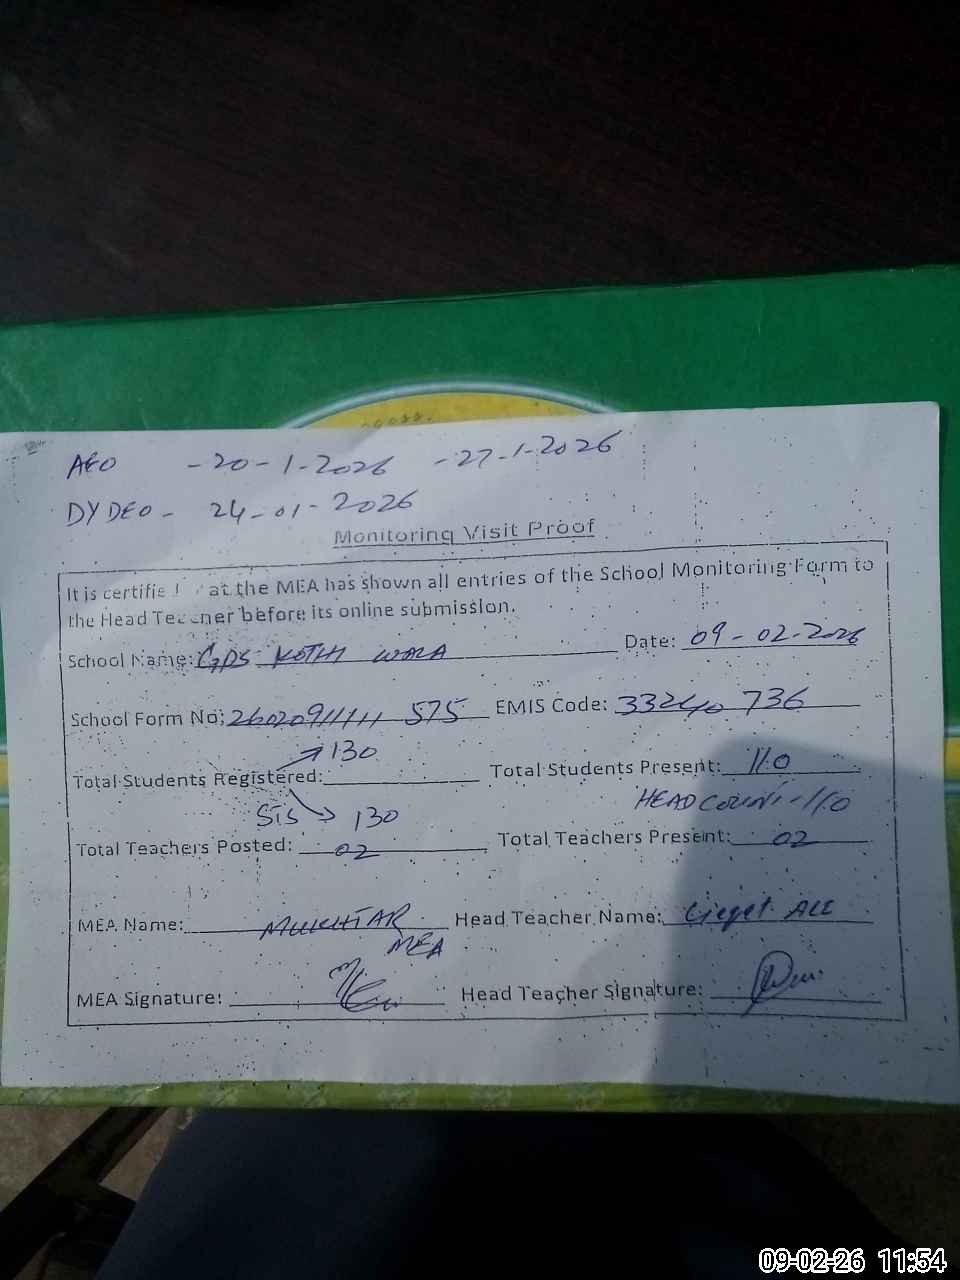 AEO - 20-1-2026 - 27-1-2026
DY DEO - 24-01-2026
Monitoring Visit Proof
It is certified at the MEA has shown all entries of the School Monitoring Form to
the Head Teacher before its online submission.
School Name: GPS KOTHI WALA Date: 09-02-2026
School Form No: 575 EMIS Code: 33240 736
130
Total Students Registered: Total Students Present: 110
SIS 130 HEAD COUNT - 110
Total Teachers Posted: 02 Total Teachers Present: 02
MEA Name: MUKHTAR Head Teacher Name: ALI
MEA
MEA Signature: Head Teacher Signature:
09-02-26 11:54